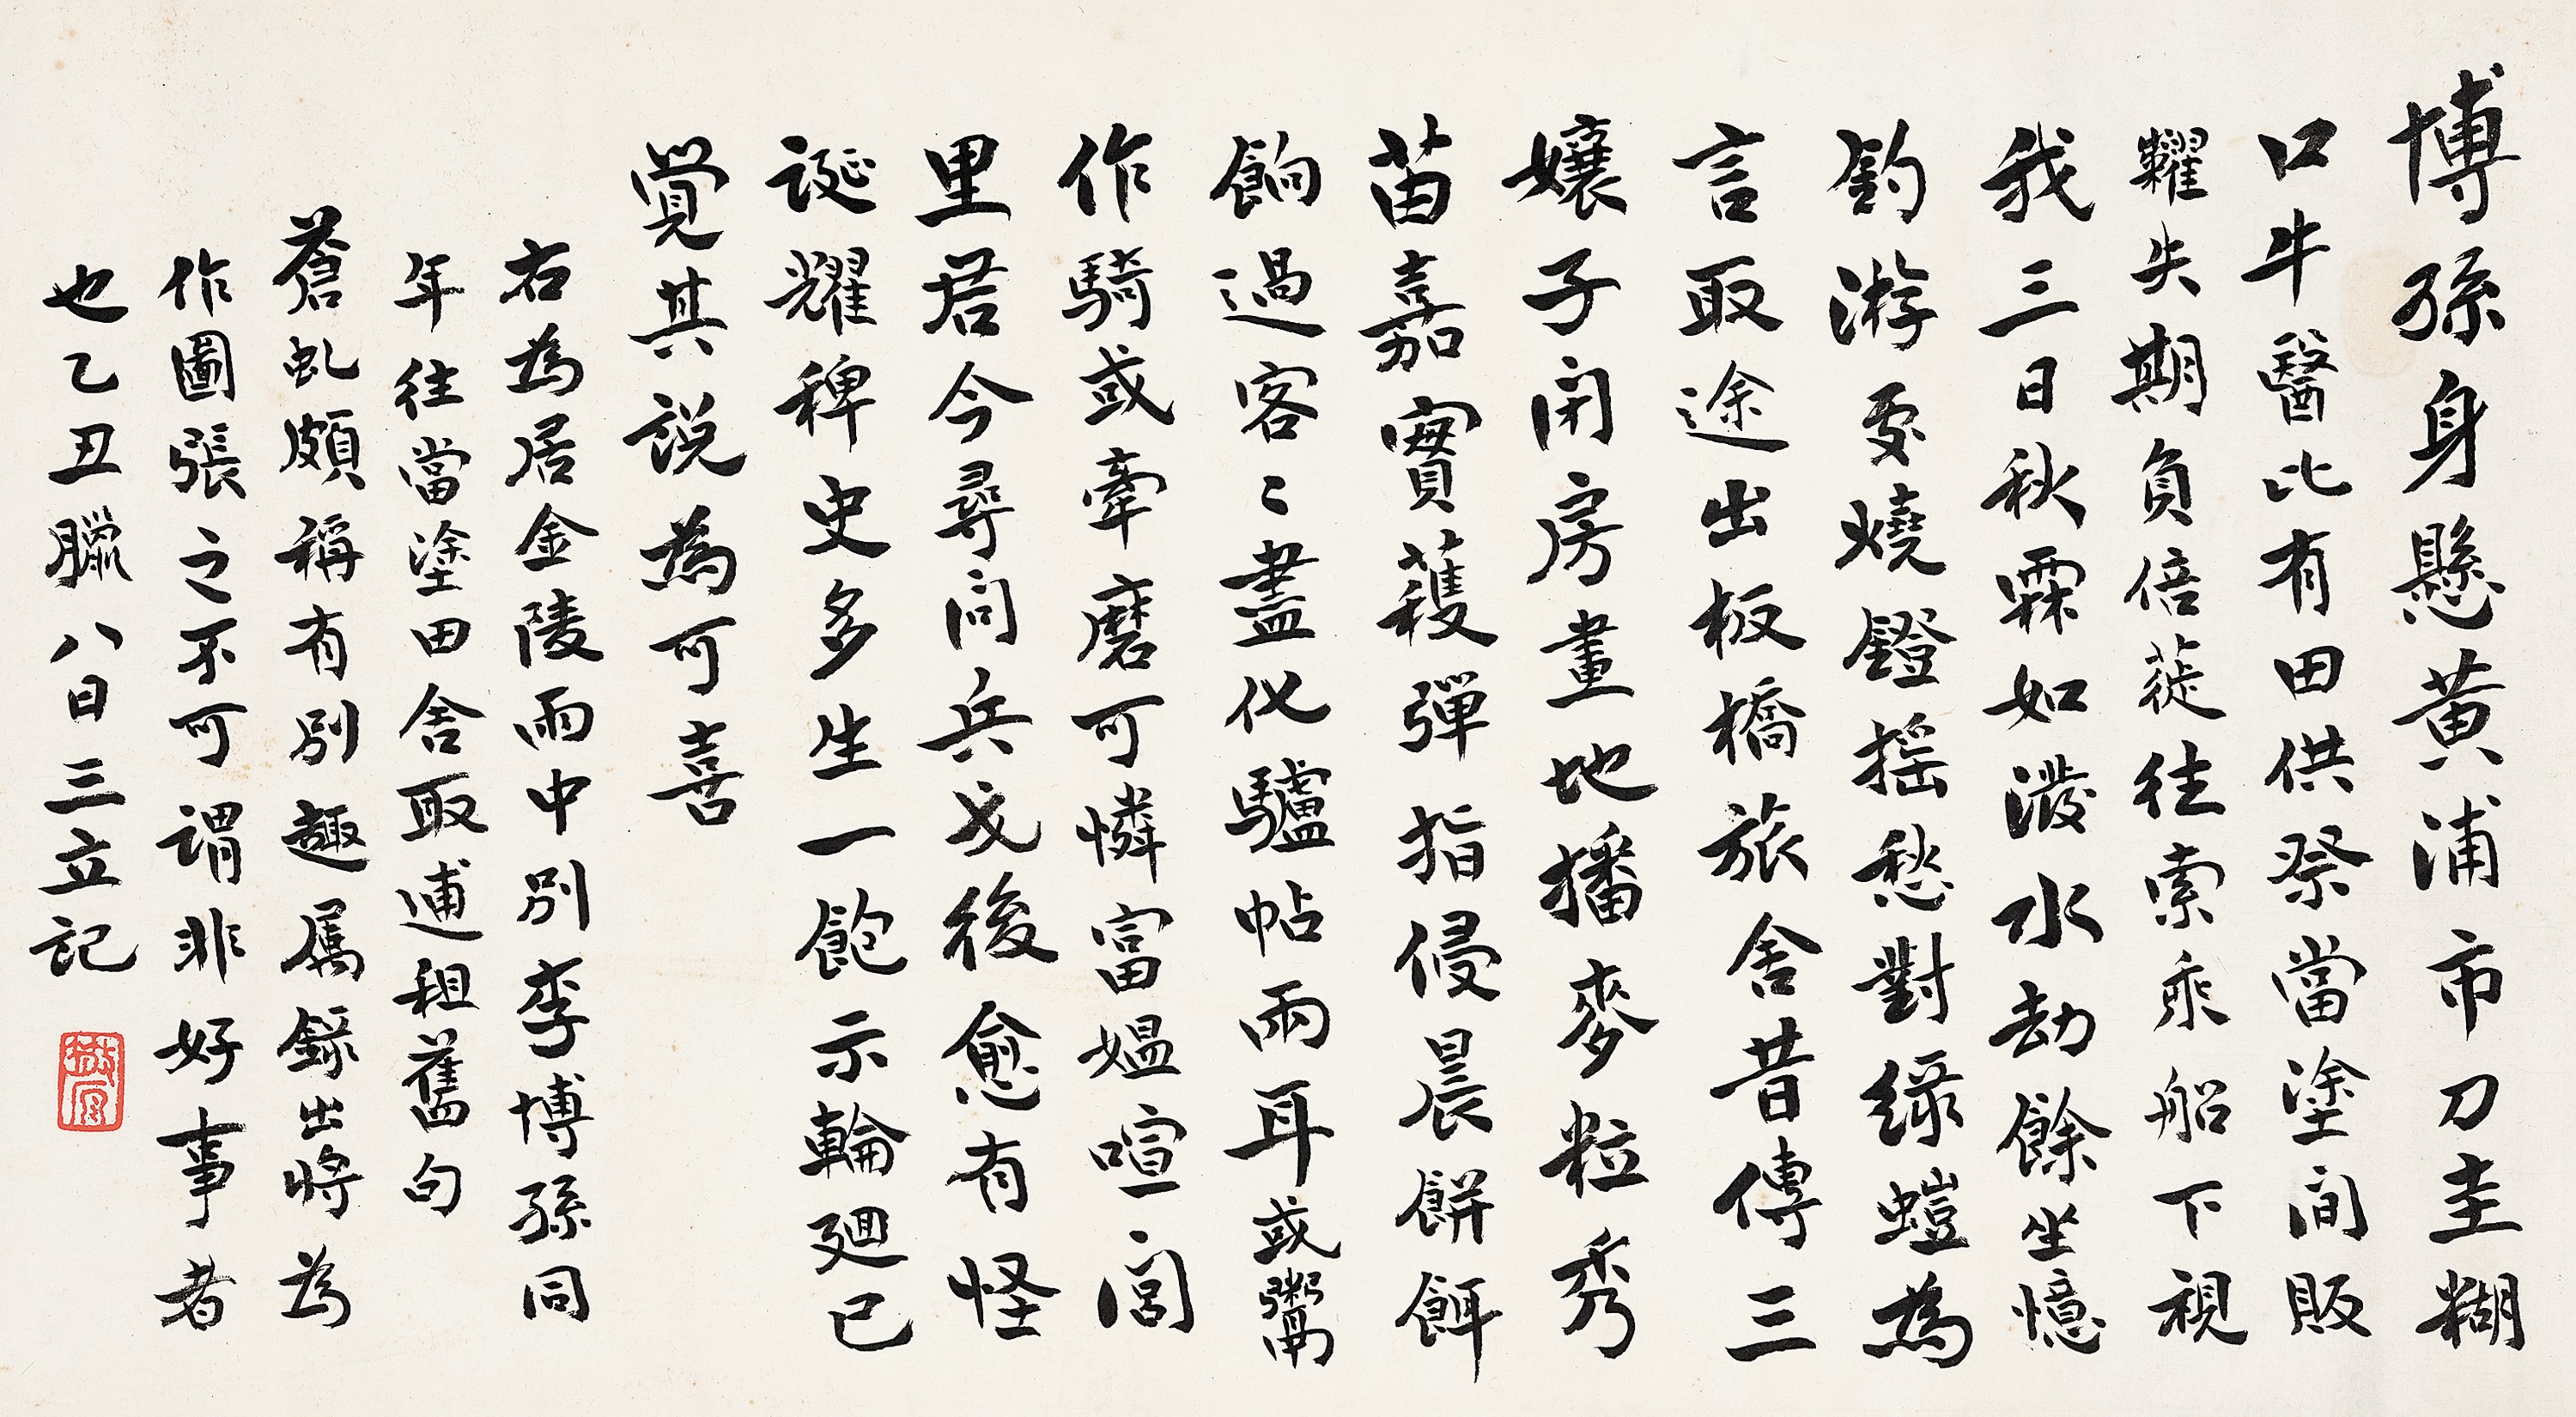 博孫身懸黃浦市刀圭糊
口牛醫比有田供祭當塗間販
糶失期負倍蓰往索乘船下視
我三日秋霖如潑水劫餘坐憶
釣游更燒鐙搖愁對綠螘為
言取途出板橋旅舍昔傳三
孃子闭房畫地播麥粒秀
苗嘉實穫彈指侵晨餅餌
餉過客〻盡化驢帖兩耳或鬻
作騎或牽磨可憐富媼喧閭
里居今尋问兵戈後愈有怪
誕耀稗史多生一飽示輪廻已
覺其説為可喜
右為居金陵雨中別李博孫同
年往當塗田舍取逋租舊句
蒼虬頗稱有別趣屬錄出將為
作圖張之不可謂非好事者
也乙丑臘八日三立記